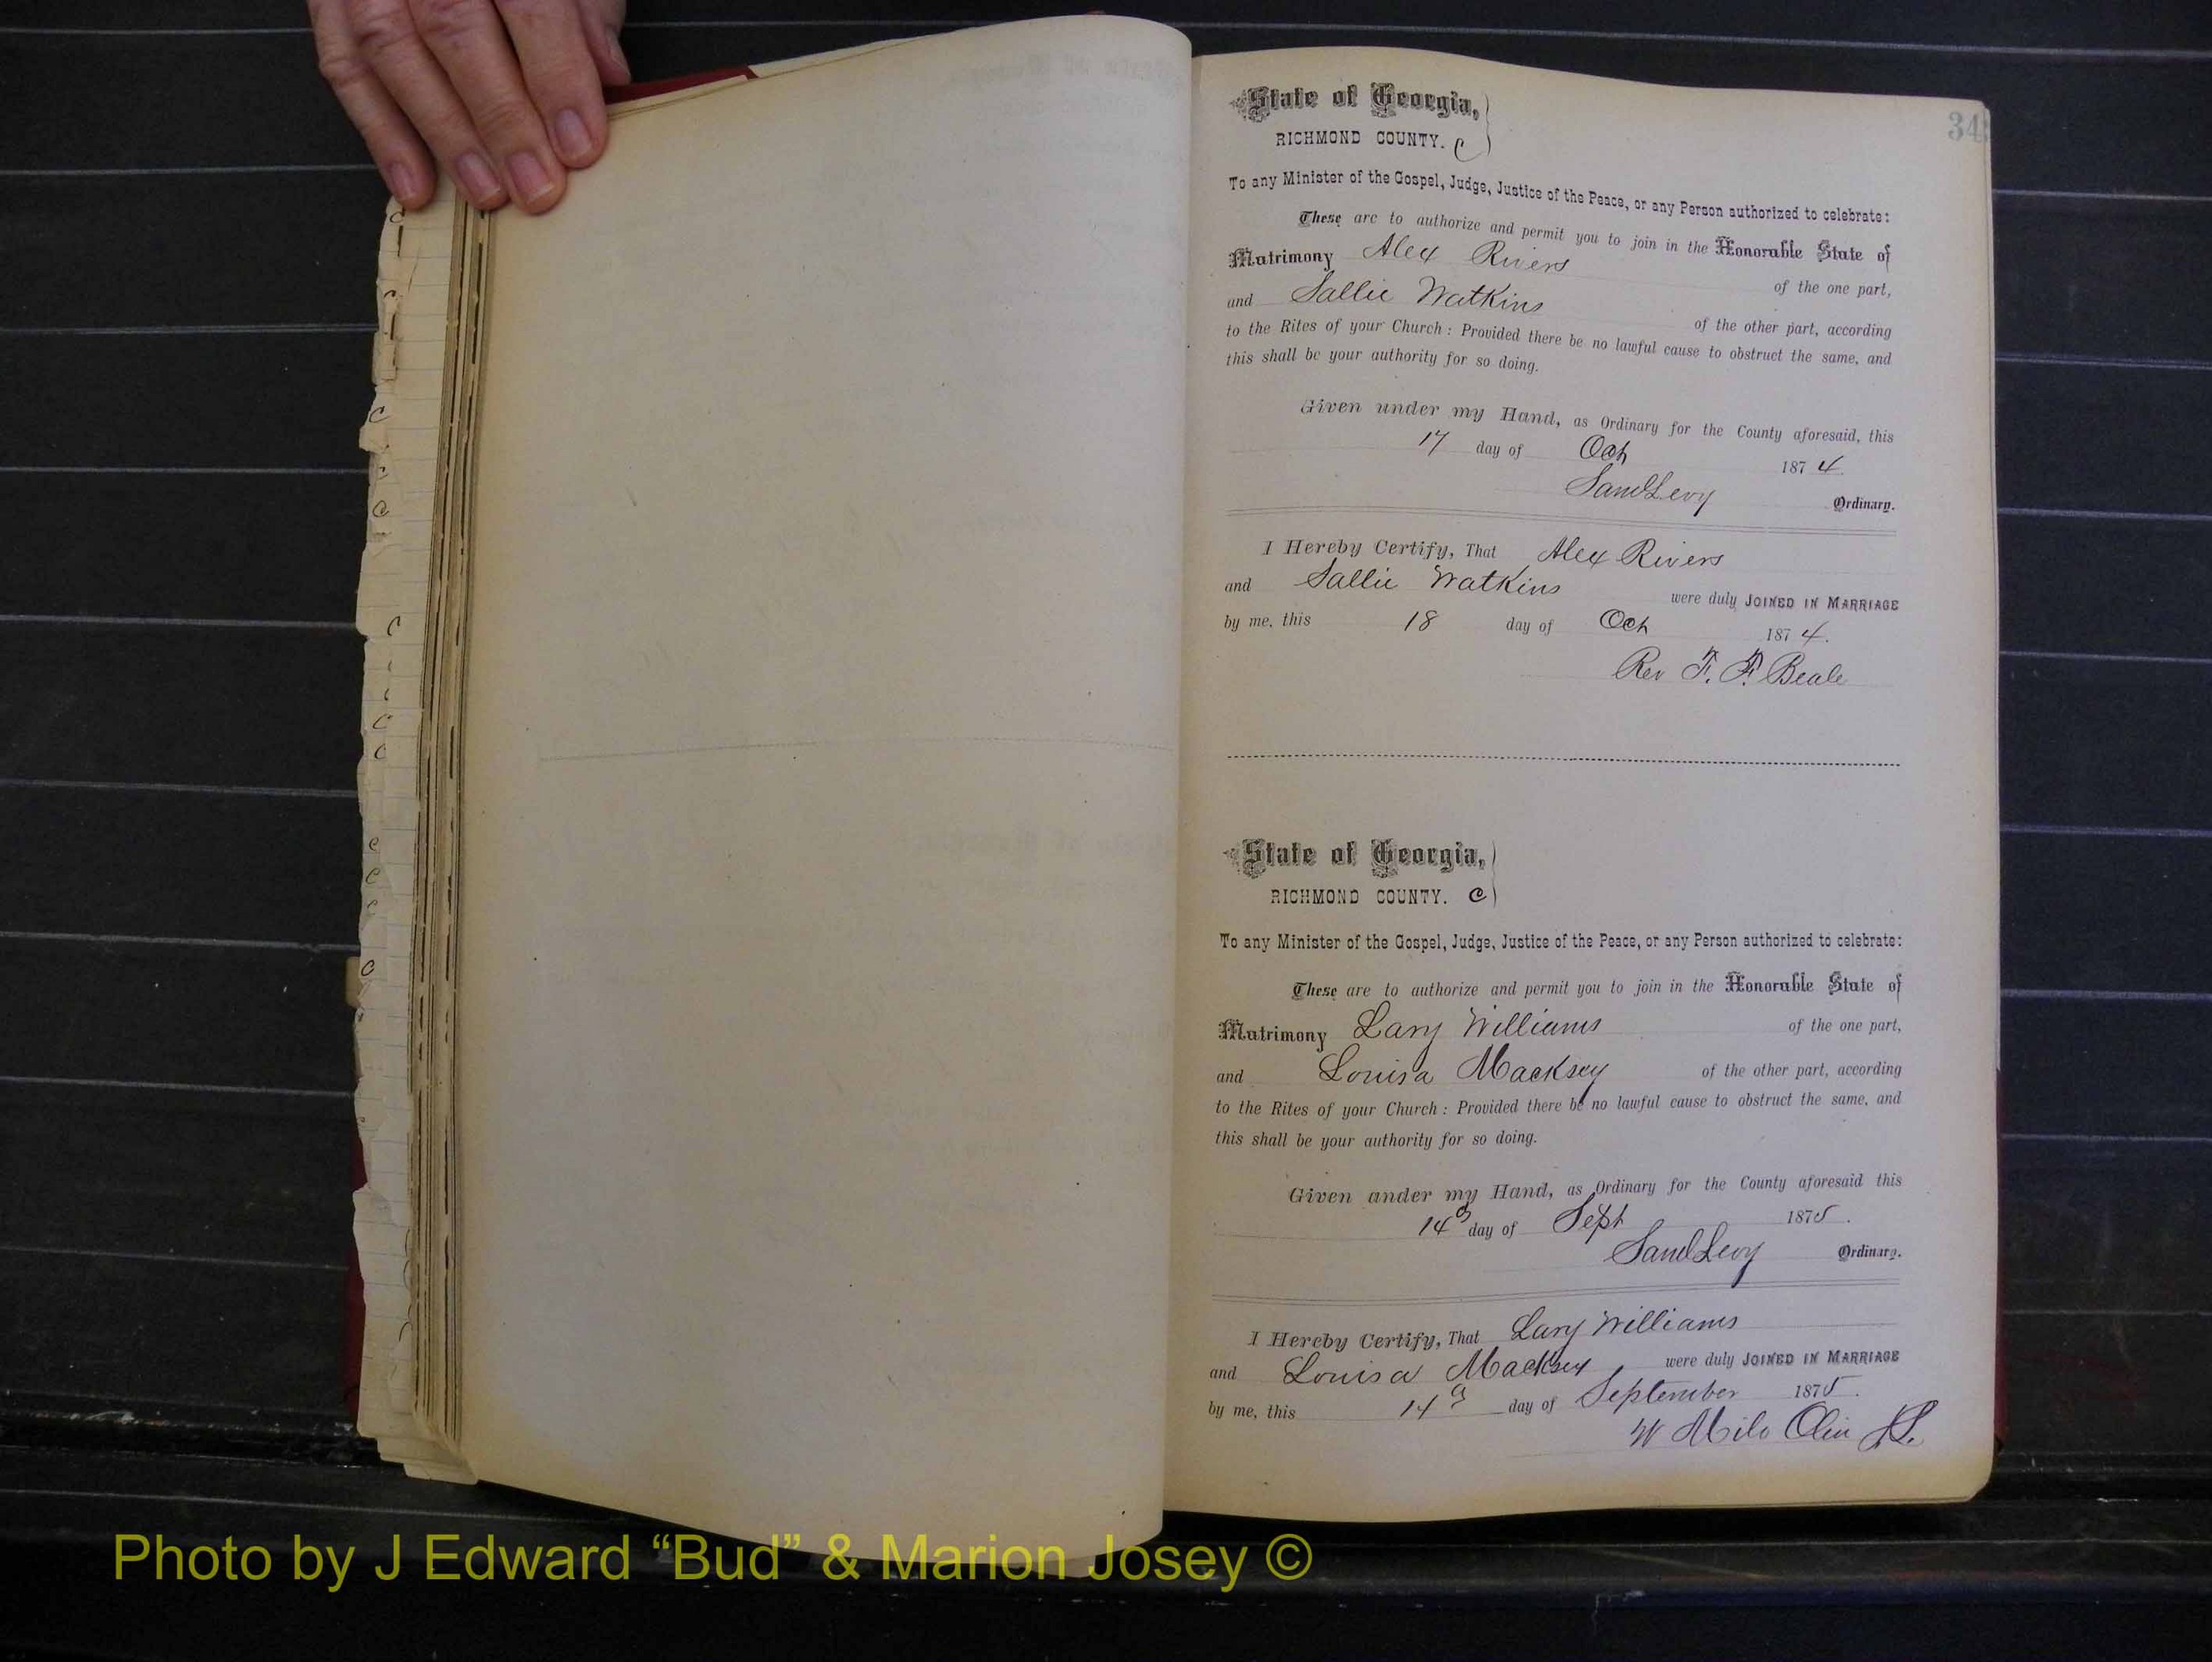 34
State of Georgia,
RICHMOND COUNTY. C
To any Minister of the Gospel, Judge, Justice of the Peace, or any Person authorized to celebrate:
These are to authorize and permit you to join in the Honorable State of
Matrimony Alex Rivers of the one part,
and Sallie Watkins of the other part, according
to the Rites of your Church: Provided there be no lawful cause to obstruct the same, and
this shall be your authority for so doing.
Given under my Hand, as Ordinary for the County aforesaid, this
17 day of Oct 1874
Saml Levy Ordinary.
I Hereby Certify, That Alex Rivers
and Sallie Watkins were duly JOINED IN MARRIAGE
by me, this 18 day of Oct 1874.
Rev F. F. Beale
State of Georgia,
RICHMOND COUNTY. C
To any Minister of the Gospel, Judge, Justice of the Peace, or any Person authorized to celebrate:
These are to authorize and permit you to join in the Honorable State of
Matrimony Lary Williams of the one part,
and Louisa Macksey of the other part, according
to the Rites of your Church: Provided there be no lawful cause to obstruct the same, and
this shall be your authority for so doing.
Given under my Hand, as Ordinary for the County aforesaid this
14 day of Sept 1875.
Saml Levy Ordinary.
I Hereby Certify, That Lary Williams
and Louisa Macksey were duly JOINED IN MARRIAGE
by me, this 14 day of September 1875.
W Milo Olin
Photo by J Edward “Bud” & Marion Josey ©